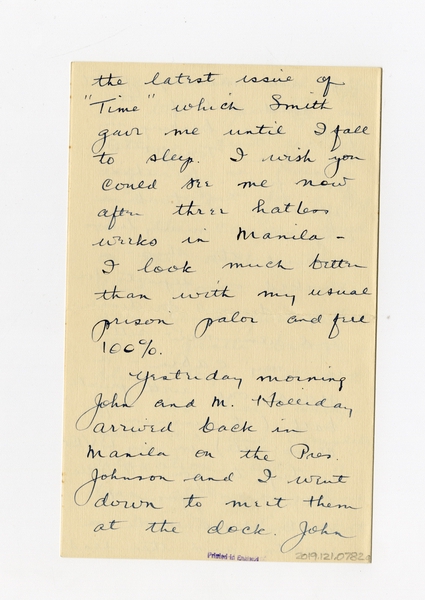 the latest issue of
"Time" which Smith
gave me until I fall
to sleep. I wish you
could see me now
after three hatless
weeks in Manila -
I look much better
than with my usual
prison palor and feel
100%.
Yesterday morning
John and M. Holliday
arrived back in
Manila on the Pres.
Johnson and I went
down to meet them
at the dock. John
Printed in
2019.121.0782